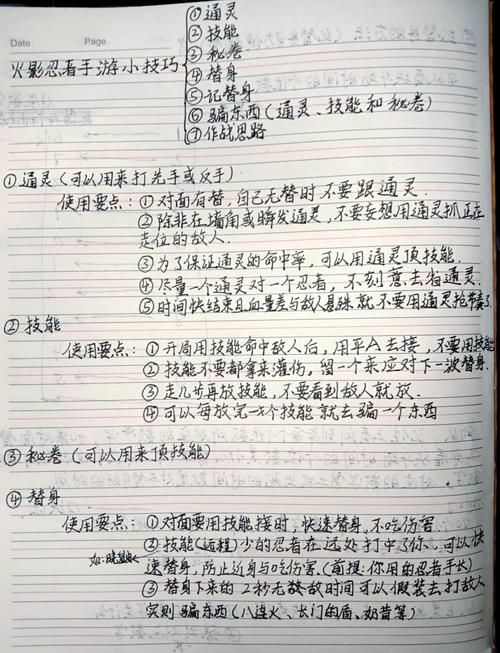 Date.
Page.
火影忍者手游小技巧
① 通灵
② 技能
③ 秘卷
④ 替身
⑤ 记替身
⑥ 骗东西(通灵、技能和秘卷)
⑦ 作战思路
① 通灵(可以用来打先手或反手)
使用要点:① 对面有替,自己无替时不要跟通灵.
② 除非在墙角或瞬发通灵,不要妄想用通灵抓正在
走位的敌人.
③ 为了保证通灵的命中率,可以用通灵顶技能.
④ 尽量一个通灵对一个忍者,不刻意去省通灵.
⑤ 时间快结束且血量差与敌人悬殊就不要用通灵抢节奏了
② 技能
使用要点:① 开局用技能命中敌人后,用平A去接,不要用技能
② 技能不要都拿来灌伤,留一个来应对下一波替身.
③ 走几步再放技能,不要看到敌人就放.
④ 可以每放完一个技能就去骗一个东西
③ 秘卷(可以用来顶技能)
④ 替身
使用要点:① 对面要用技能接时,快速替身,不吃伤害
② 技能(远程)少的忍者在远处打中了你,可以快
速替身,防止近身与吃伤害.(前提:你用的忍者手长)
③ 替身下来的2秒无敌时间可以假装去打敌人
实则骗东西(八连火、长门的盾、奶昔等)